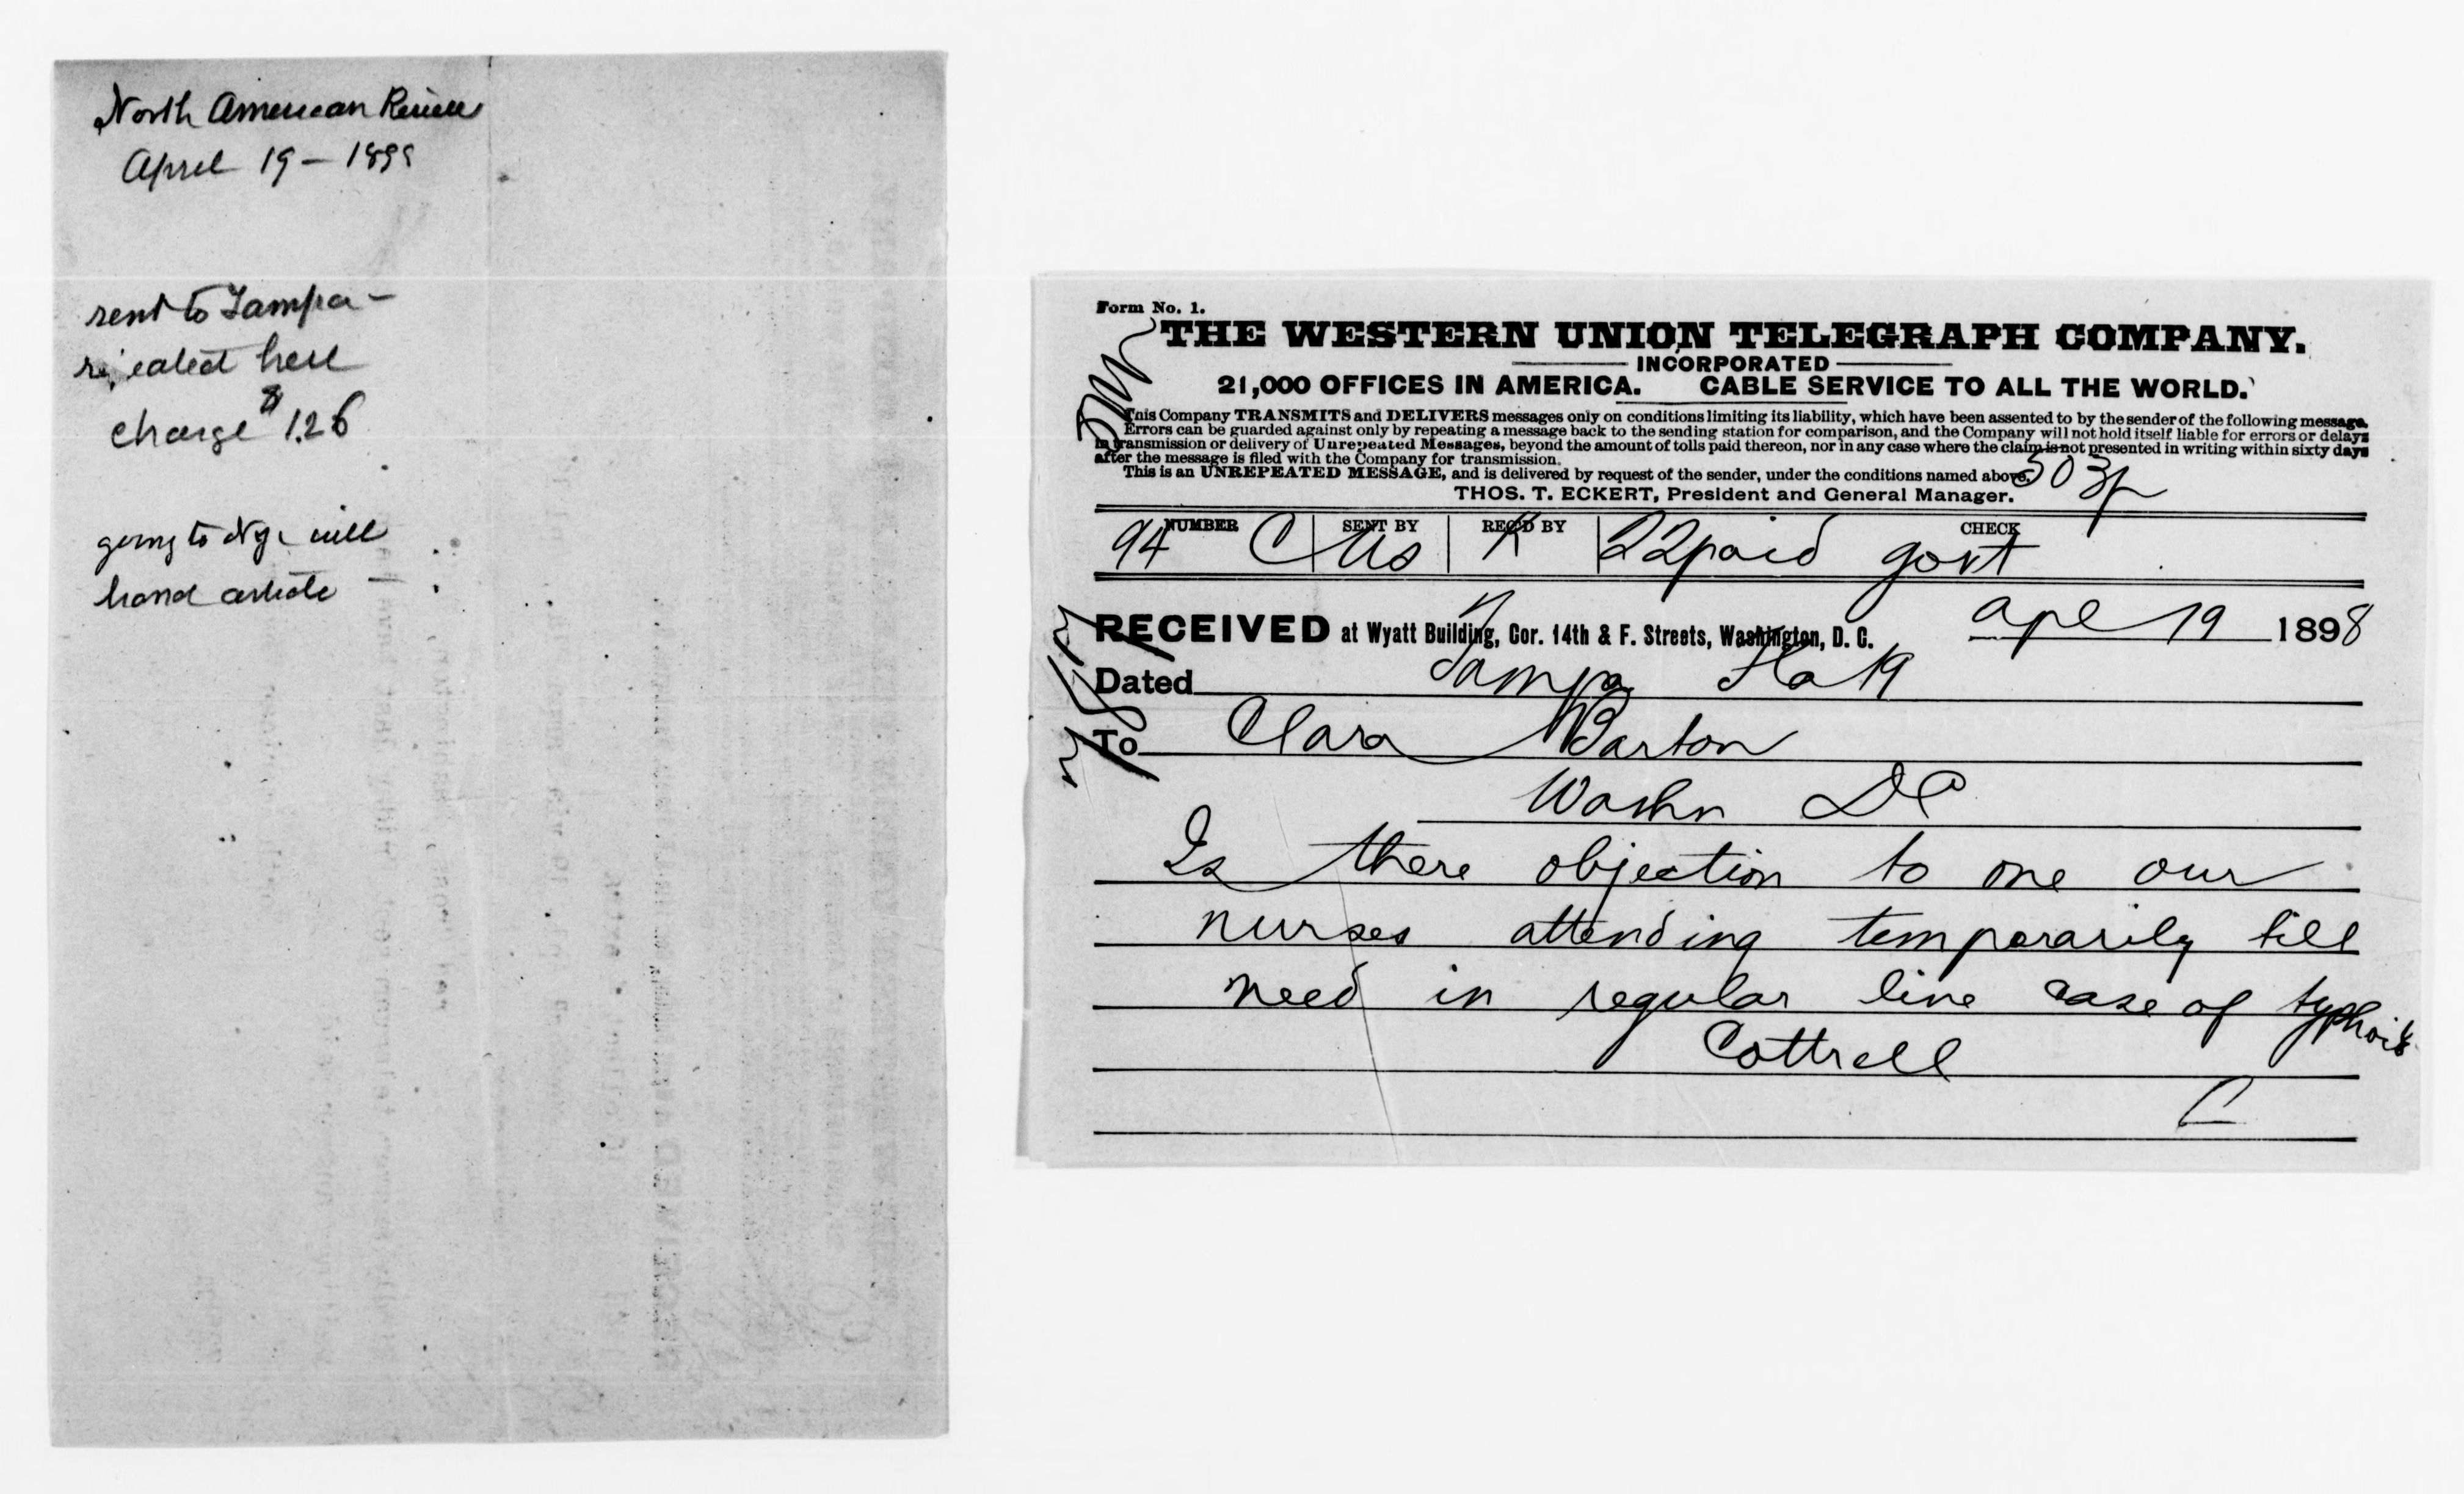 North American Review
April 19 - 1898
sent to Tampa -
repeated here
charge $1.26
going to Ny. will
hand article -
Form No. 1.
THE WESTERN UNION TELEGRAPH COMPANY.
INCORPORATED
21,000 OFFICES IN AMERICA. CABLE SERVICE TO ALL THE WORLD.
This Company TRANSMITS and DELIVERS messages only on conditions limiting its liability, which have been assented to by the sender of the following message.
Errors can be guarded against only by repeating a message back to the sending station for comparison, and the Company will not hold itself liable for errors or delays
in transmission or delivery of Unrepeated Messages, beyond the amount of tolls paid thereon, nor in any case where the claim is not presented in writing within sixty days
after the message is filed with the Company for transmission.
This is an UNREPEATED MESSAGE, and is delivered by request of the sender, under the conditions named above.
503p
THOS. T. ECKERT, President and General Manager.
NUMBER SENT BY REC'D BY CHECK
94 C K 22 paid govt
RECEIVED at Wyatt Building, Cor. 14th & F. Streets, Washington, D. C. Apl 19 1898
Dated Tampa Fla 19
To Clara Barton
Washn DC
Is there objection to one our
nurses attending temporarily till
need in regular line case of typhoid
Cottrell